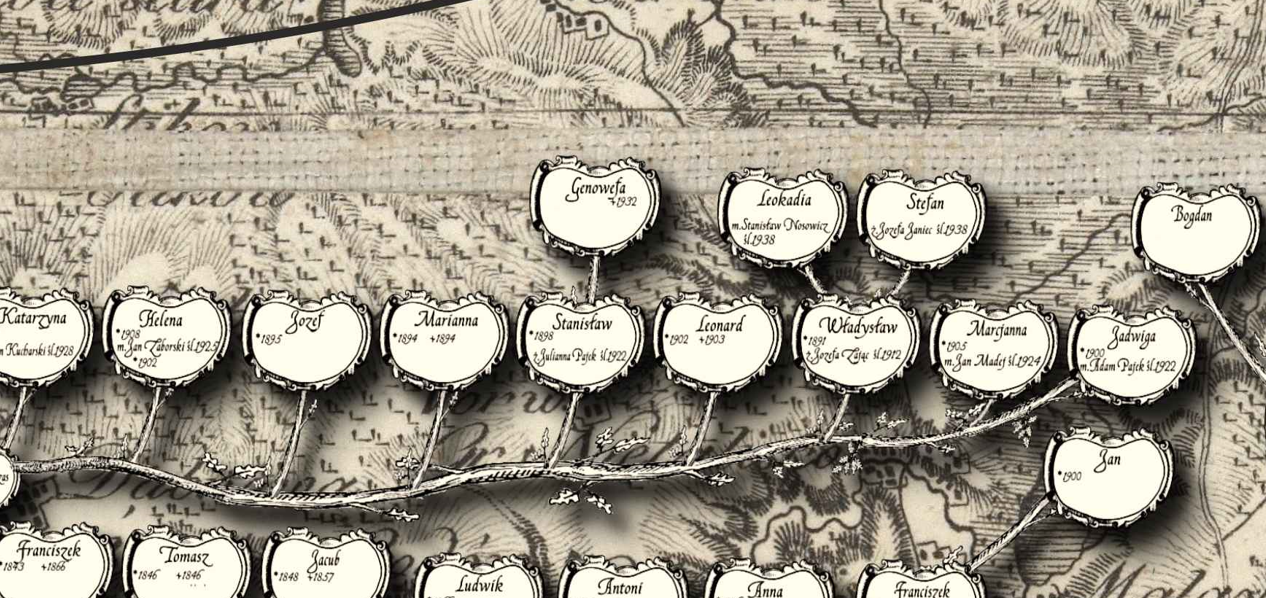 Genowefa
+1932
Leokadia
m.Stanisław Nosowicz
śl.1938
Stefan
ż.Jozefa Janiec śl.1938
Bogdan
Katarzyna
m Kucharski śl.1928
Helena
*1908
m.Jan Zaborski śl.1925
*1902
Jozef
*1895
Marianna
*1894 +1894
Stanisław
*1898
ż.Julianna Pajek śl.1922
Leonard
*1902 +1903
Władysław
*1891
ż.Jozefa Zając śl.1912
Marcjanna
*1905
m.Jan Madej śl.1924
Jadwiga
*1900
m.Adam Pajek śl.1922
Jan
*1900
Franciszek
*1843 +1866
Tomasz
*1846 +1846
Jacub
*1848 +1857
Ludwik
Antoni
Anna
Franciszek